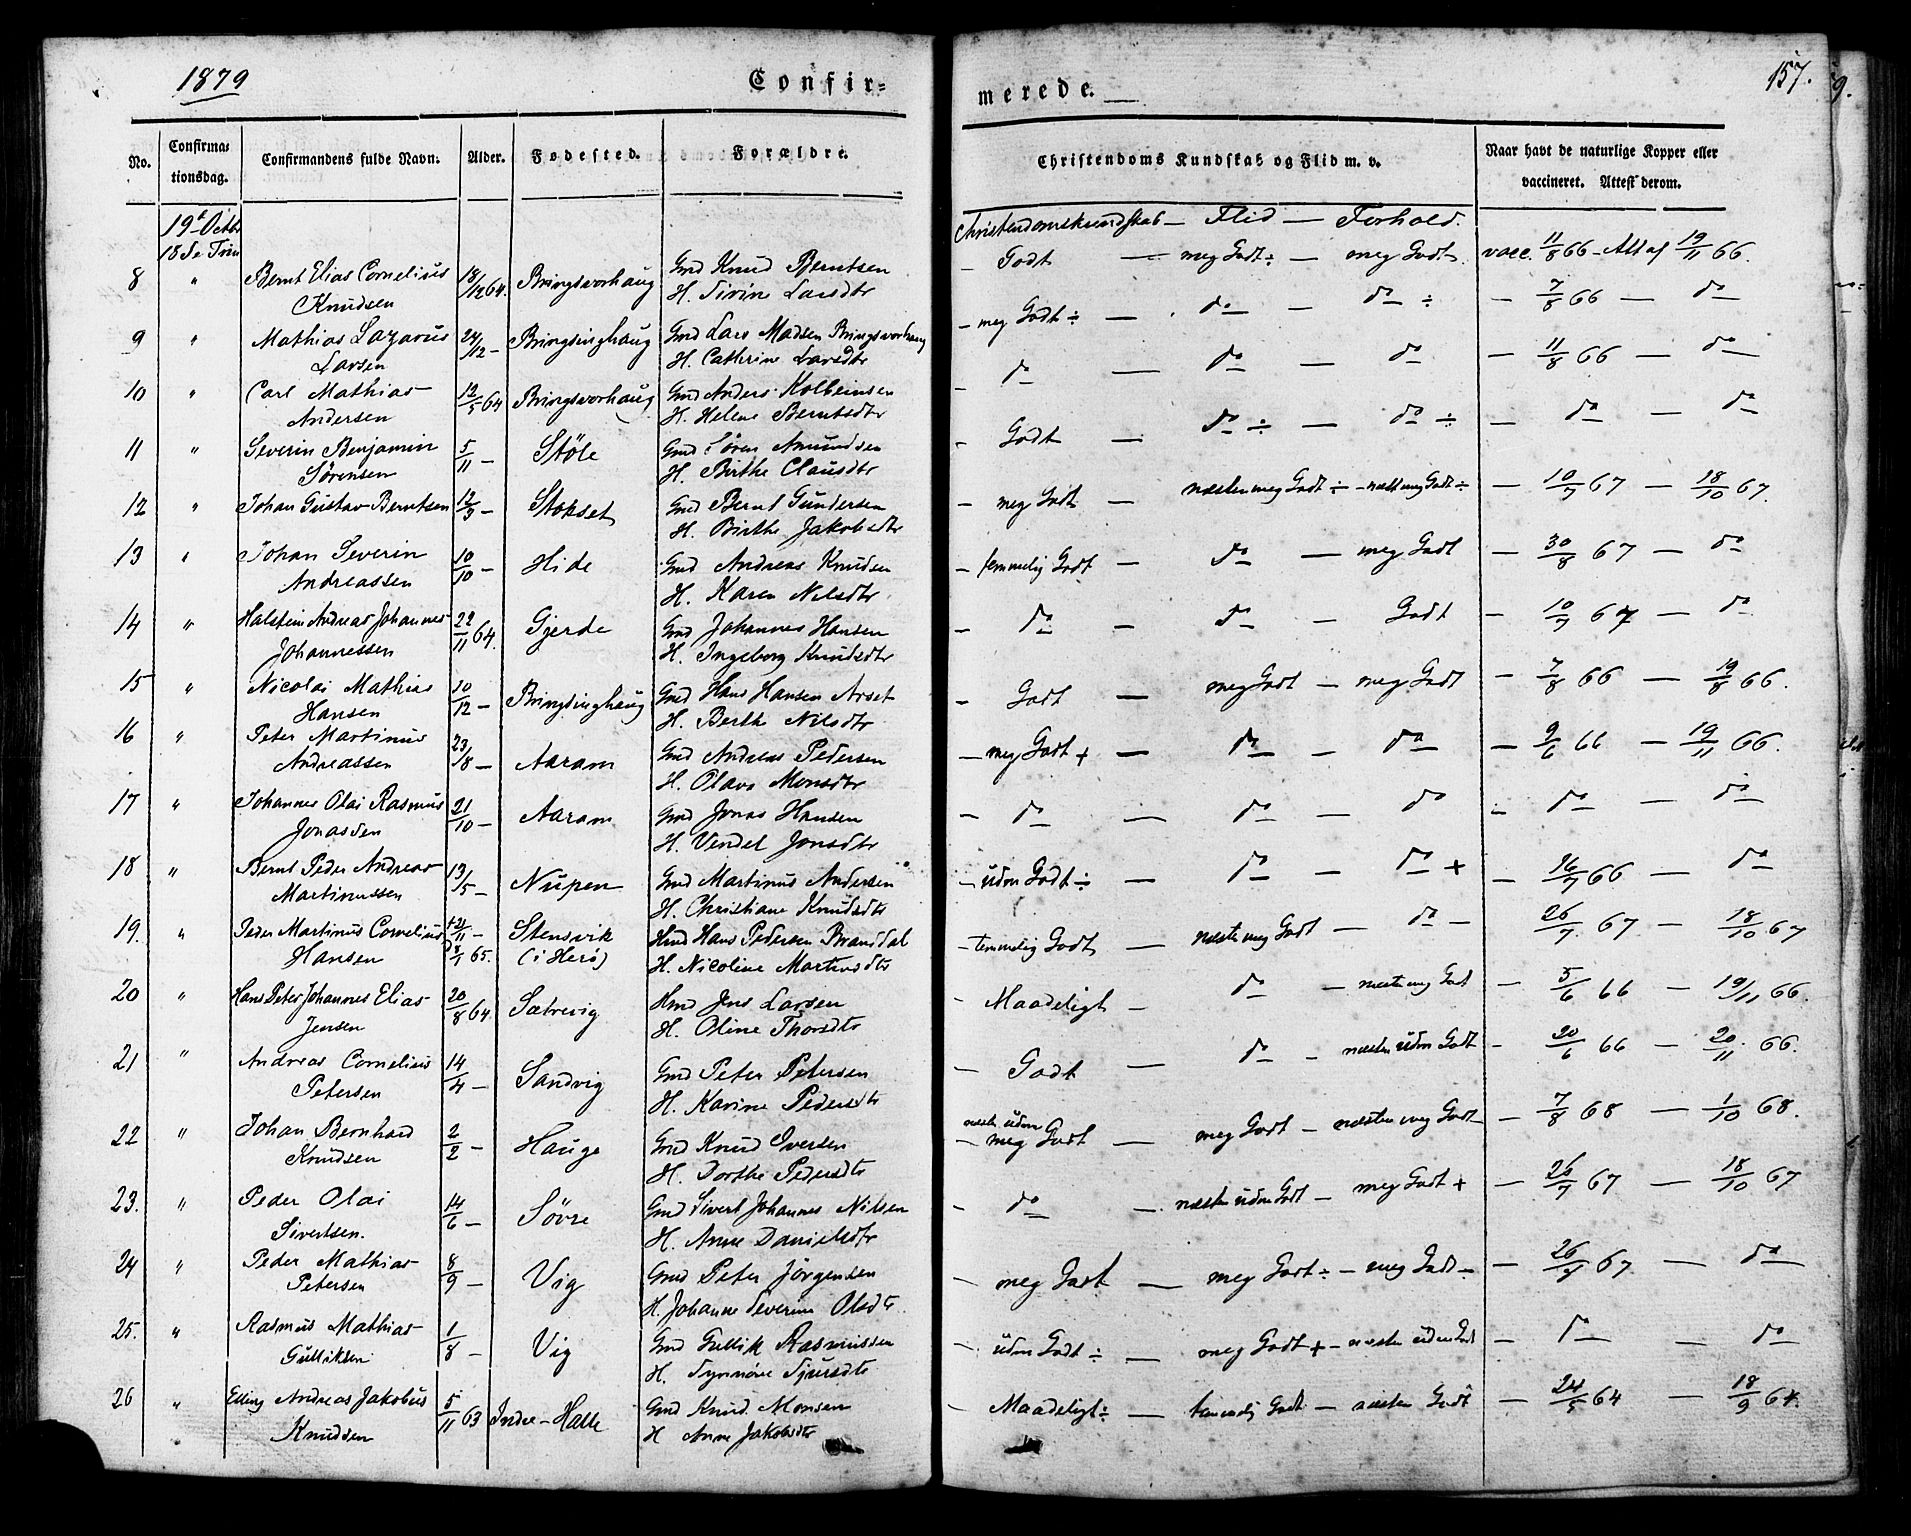 1879
Confir-
merede.
157.
9.
No.
Confirma-
tionsdag.
Confirmandens fulde Navn.
Alder.
Fødested.
Forældre.
Christendoms Kundskab og Flid m. v.
Naar havt de naturlige Kopper eller
vaccineret. Attest derom.
19t Octbr
Christendomskundskab — Flid — Forhold.
8 " Bernt Elias Cornelius 18/12 64. Bringsvorhaug Gmd Knud Berntsen - Godt — meg Godt ÷ — meg Godt vacc. 11/8 66 - Att af 19/11 66.
Knudsen H. Sirine Larsdtr
9 " Mathias Lazarus 24/12 - Bringsinghaug Gmd Lars Madsen Bringsvorhaug - meg Godt ÷ — do — do ÷ — 7/8 66 — do
Larsen H. Cathrine Larsdtr
10 " Carl Mathias 12/5 64 Bringsvorhaug Gmd Anders Kolbeinsen - do — do — do — 11/8 66 — do
Andersen H. Helene Berntsdtr
11 " Severin Benjamin 5/11 - Støle Gmd Søren Amundsen - Godt — do ÷ — do ÷ — do — do
Sørensen H. Birthe Clausdtr
12 " Johan Gustav Berntsen 12/3 - Stokset Gmd Bernt Gundersen - meg Godt — næsten meg Godt ÷ - næst meg Godt ÷ — 10/7 67 — 18/10 67.
H. Birthe Jakobsdtr
13 " Johan Severin 10/10 - Hide Gmd Andreas Knudsen - temmelig Godt — do — meg Godt — 30/8 67 — do
Andreassen H. Karen Nilsdtr
14 " Halstein Andreas Johannes 22/11 64. Gjerde Gmd Johannes Hansen - do — do — Godt — 10/7 67 — do
Johannessen H. Ingeborg Knudsdtr
15 " Nicolai Mathias 10/12 - Bringsinghaug Gmd Hans Hansen Arset - Godt — meg Godt — meg Godt — 7/8 66 — 19/8 66.
Hansen H. Berthe Nilsdtr
16 " Peter Martinus 23/8 - Aaram Gmd Andreas Pedersen - meg Godt + — do — do — 9/6 66 — 19/11 66.
Andreassen H. Olava Monsdtr
17 " Johannes Olai Rasmus 21/10 - Aaram Gmd Jonas Hansen - do — do — do — do — do
Jonassen H. Vendel Jonsdtr
18 " Bernt Peder Andreas 13/5 - Nupen Gmd Martinus Andersen - udm Godt ÷ — do — do + — 16/7 66 — do
Martinussen H. Christiane Knudsdtr
19. " Peder Martinus Cornelius Stensvik Hmd Hans Pedersen Brandal - temmelig Godt — næsten meg Godt — do — 26/7 67 — 18/10 67
Hansen 65. (i Herø) H. Nicoline Martinsdtr
20 " Hans Peter Johannes Elias 20/8 64. Sætrevig Hmd Jens Larsen - Maadeligt — do — næsten meg Godt — 5/6 66 — 19/11 66.
Jensen H. Oline Thorsdtr
21 " Andreas Cornelius 14/4 - Sandvig Gmd Peter Petersen - Godt — do — næsten udm Godt — 20/6 66 — 20/11 66.
Petersen H. Karine Pedersdtr
22 " Johan Bernhard 2/2 - Hauge Gmd Knud Iversen næsten udm
Knudsen H. Dorthe Pedersdtr - meg Godt — meg Godt — næsten meg Godt — 7/8 68 — 1/10 68.
23. " Peder Olai 14/6 - Søvre Gmd Sivert Johannes Nilsen - do — næsten udm Godt — meg Godt + — 26/7 67 — 18/10 67
Sivertsen. H. Anne Danielsdtr
24 " Peder Mathias 8/9 - Vig Gmd Peter Jørgensen - meg Godt — meg Godt ÷ — meg Godt ÷ — 67 — do
Petersen H. Johanne Severine Olsdtr
25. " Rasmus Mathias 1/8 - Vig Gmd Gullik Rasmussen - udm Godt ÷ — meg Godt + — næsten udm Godt — do — do
Gulliksen H. Synnøve Sjursdtr
26 " Elling Andreas Jakobus 5/11 63 Indre-Halle Gmd Knud Monsen - Maadeligt ÷ — temmelig Godt — næsten Godt — 24/5 64 — 18/9 64.
Knudsen H Anne Jakobsdtr